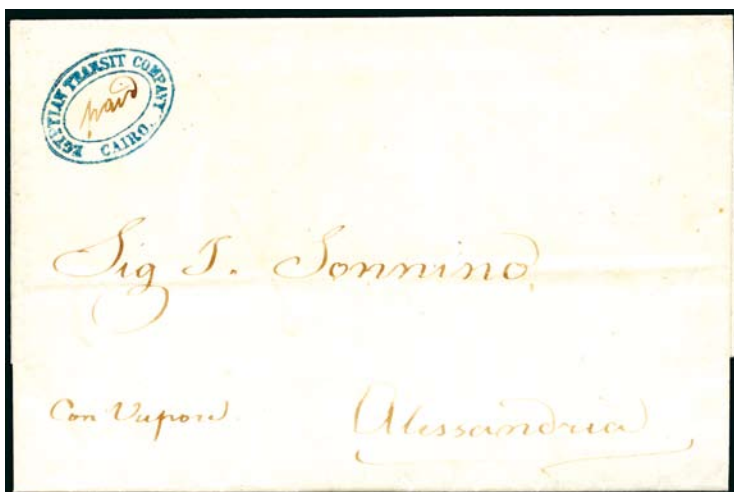 EGYPTIAN TRANSIT COMPANY
paid
CAIRO.
Sig I. Sonnino
Con Vapore
Alessandria